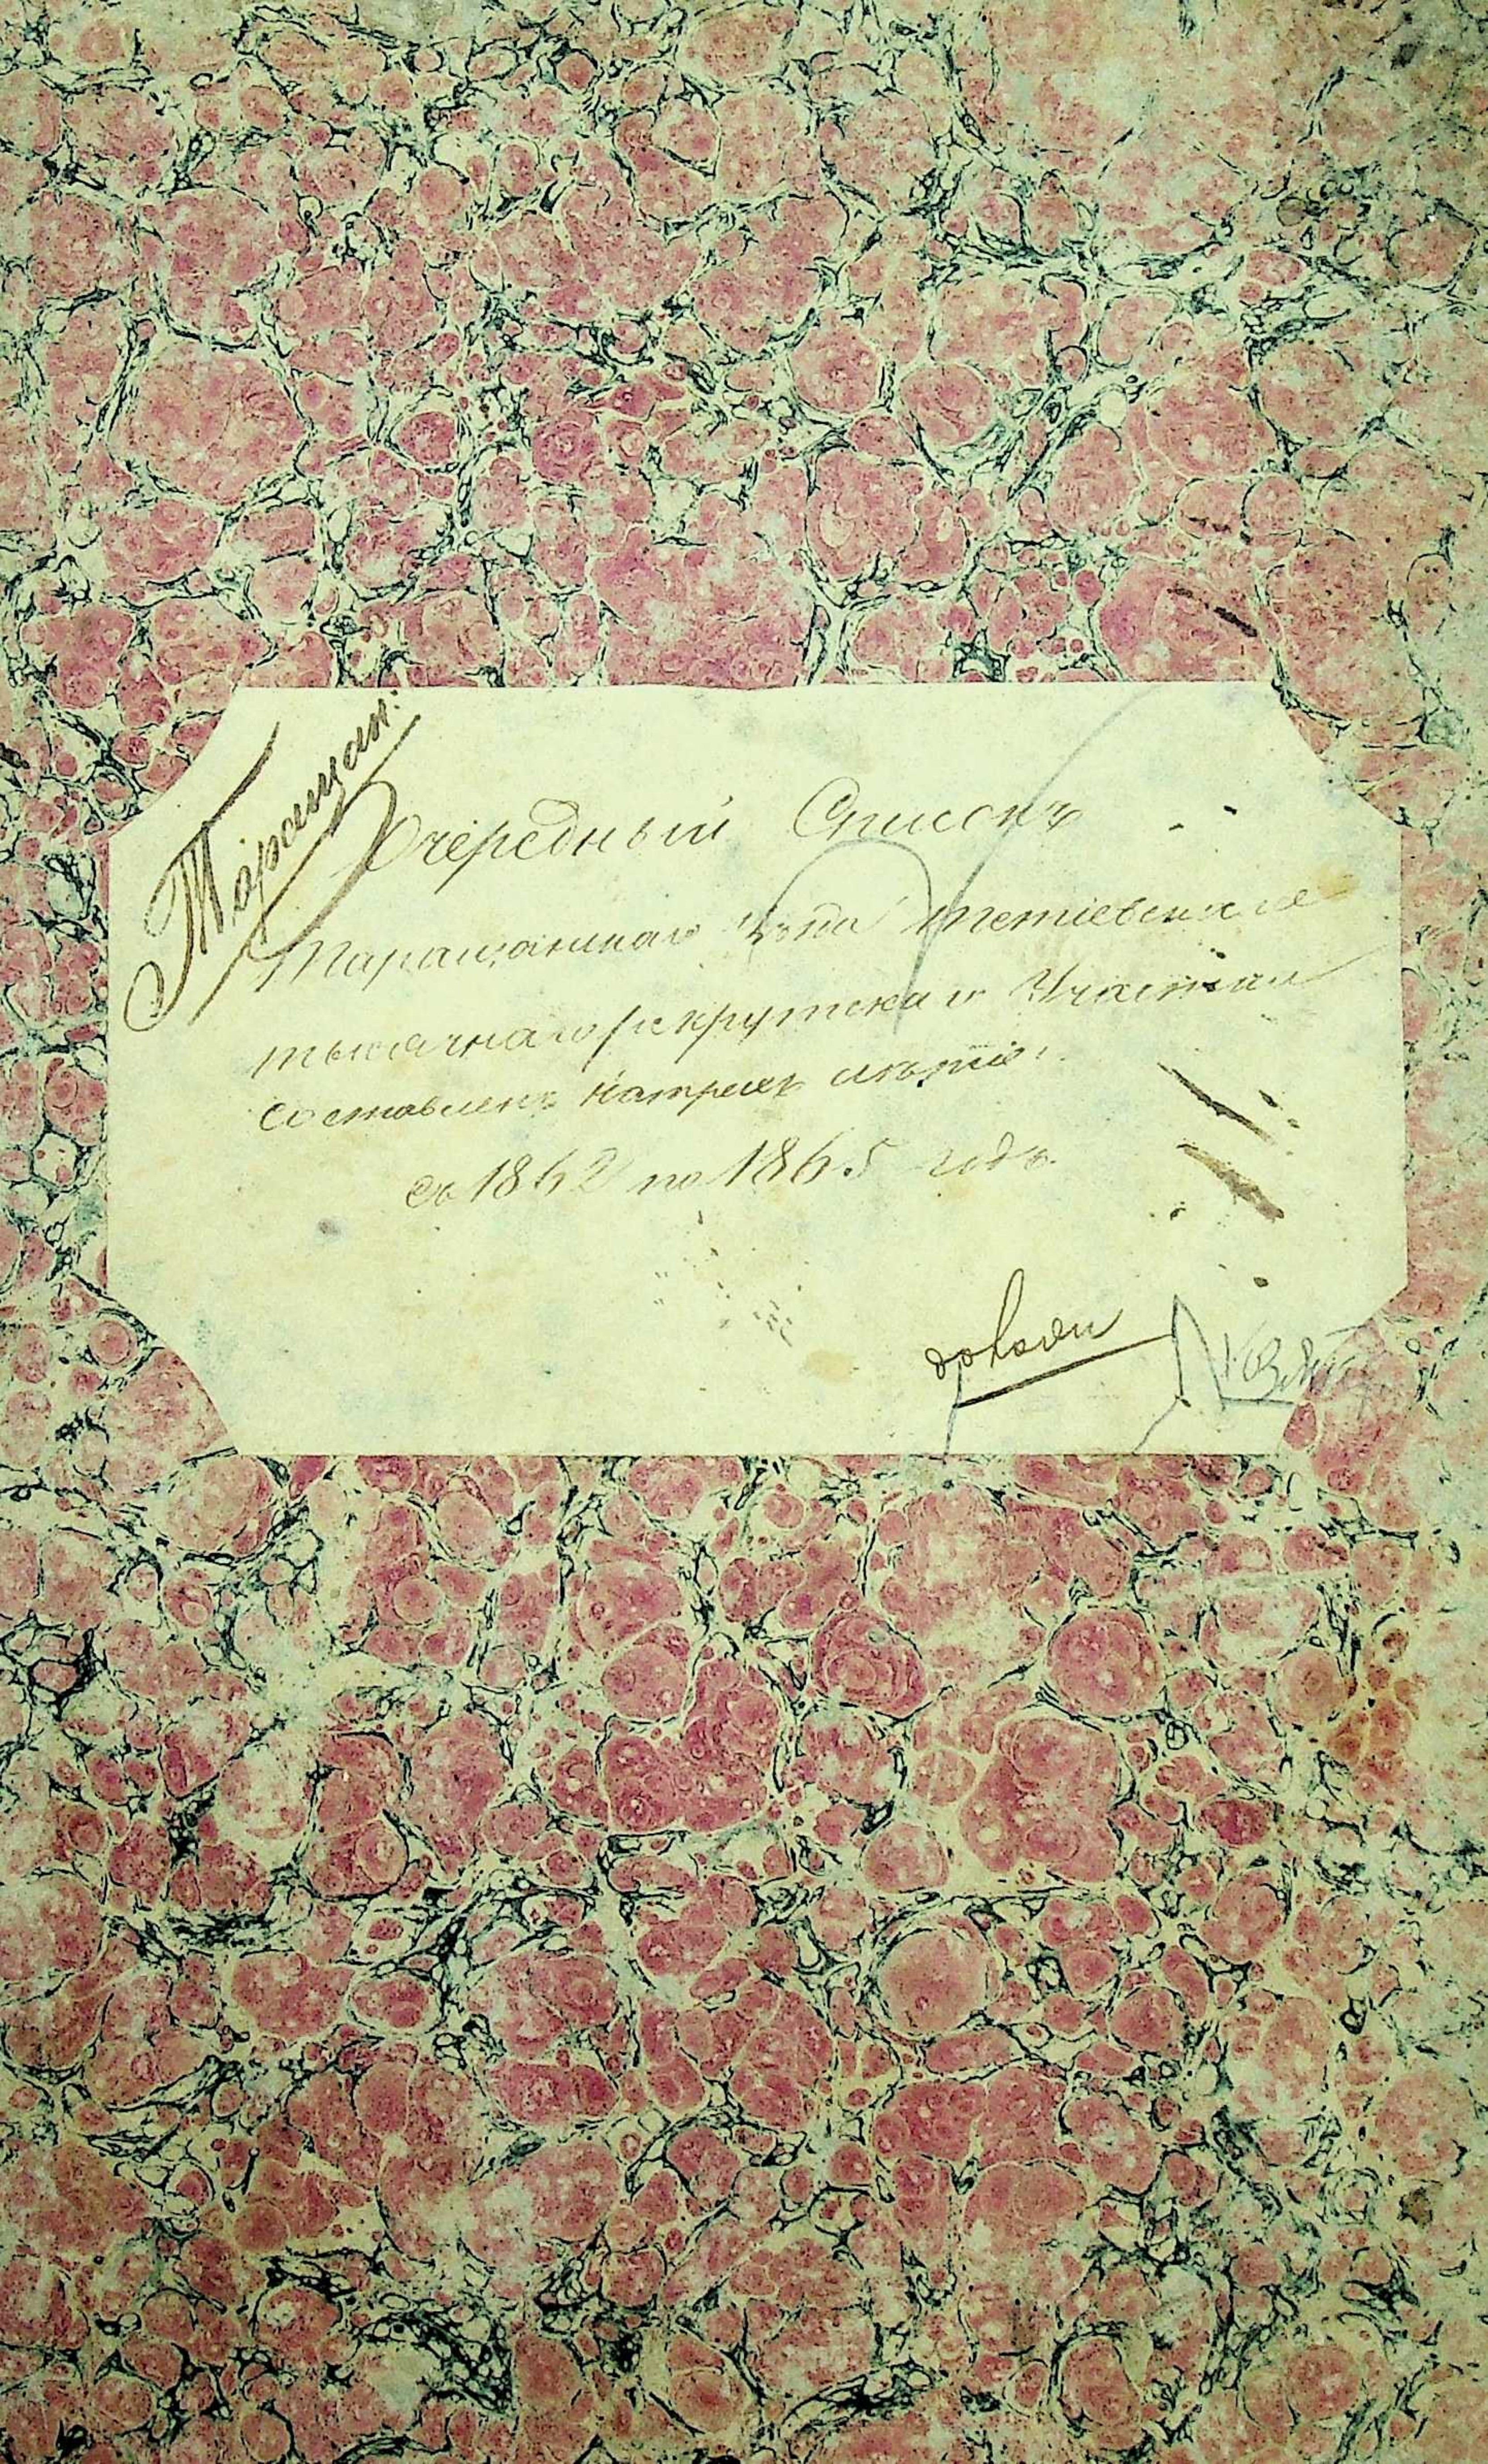 Таращан:
Очередный Списокъ
Таращанскаго Уѣзда Тетіевскаго
тысячнаго рекрутскаго Участка
составленъ натрехъ лѣтіе:
съ 1862 по 1865 годъ.